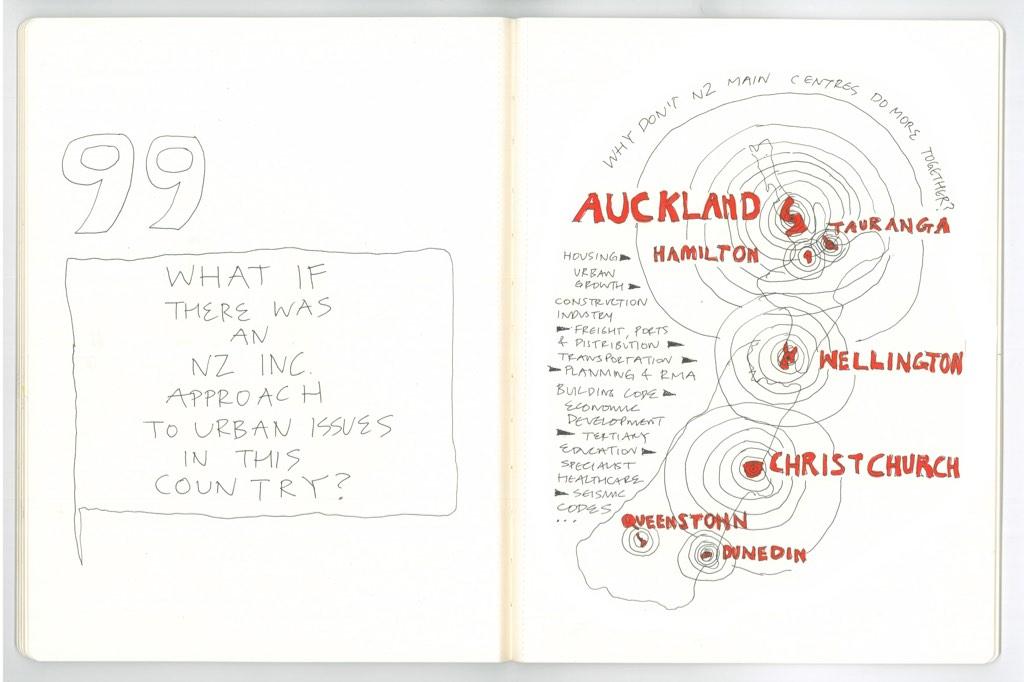 99
WHAT IF
THERE WAS
AN
NZ INC.
APPROACH
TO URBAN ISSUES
IN THIS
COUNTRY?
WHY DON'T NZ MAIN CENTRES DO MORE TOGETHER?
AUCKLAND
TAURANGA
HAMILTON
HOUSING
URBAN
GROWTH
CONSTRUCTION
INDUSTRY
FREIGHT, PORTS
& DISTRIBUTION
TRANSPORTATION
PLANNING & RMA
BUILDING CODE
ECONOMIC
DEVELOPMENT
TERTIARY
EDUCATION
SPECIALIST
HEALTHCARE
SEISMIC
CODES
...
WELLINGTON
CHRISTCHURCH
QUEENSTOWN
DUNEDIN